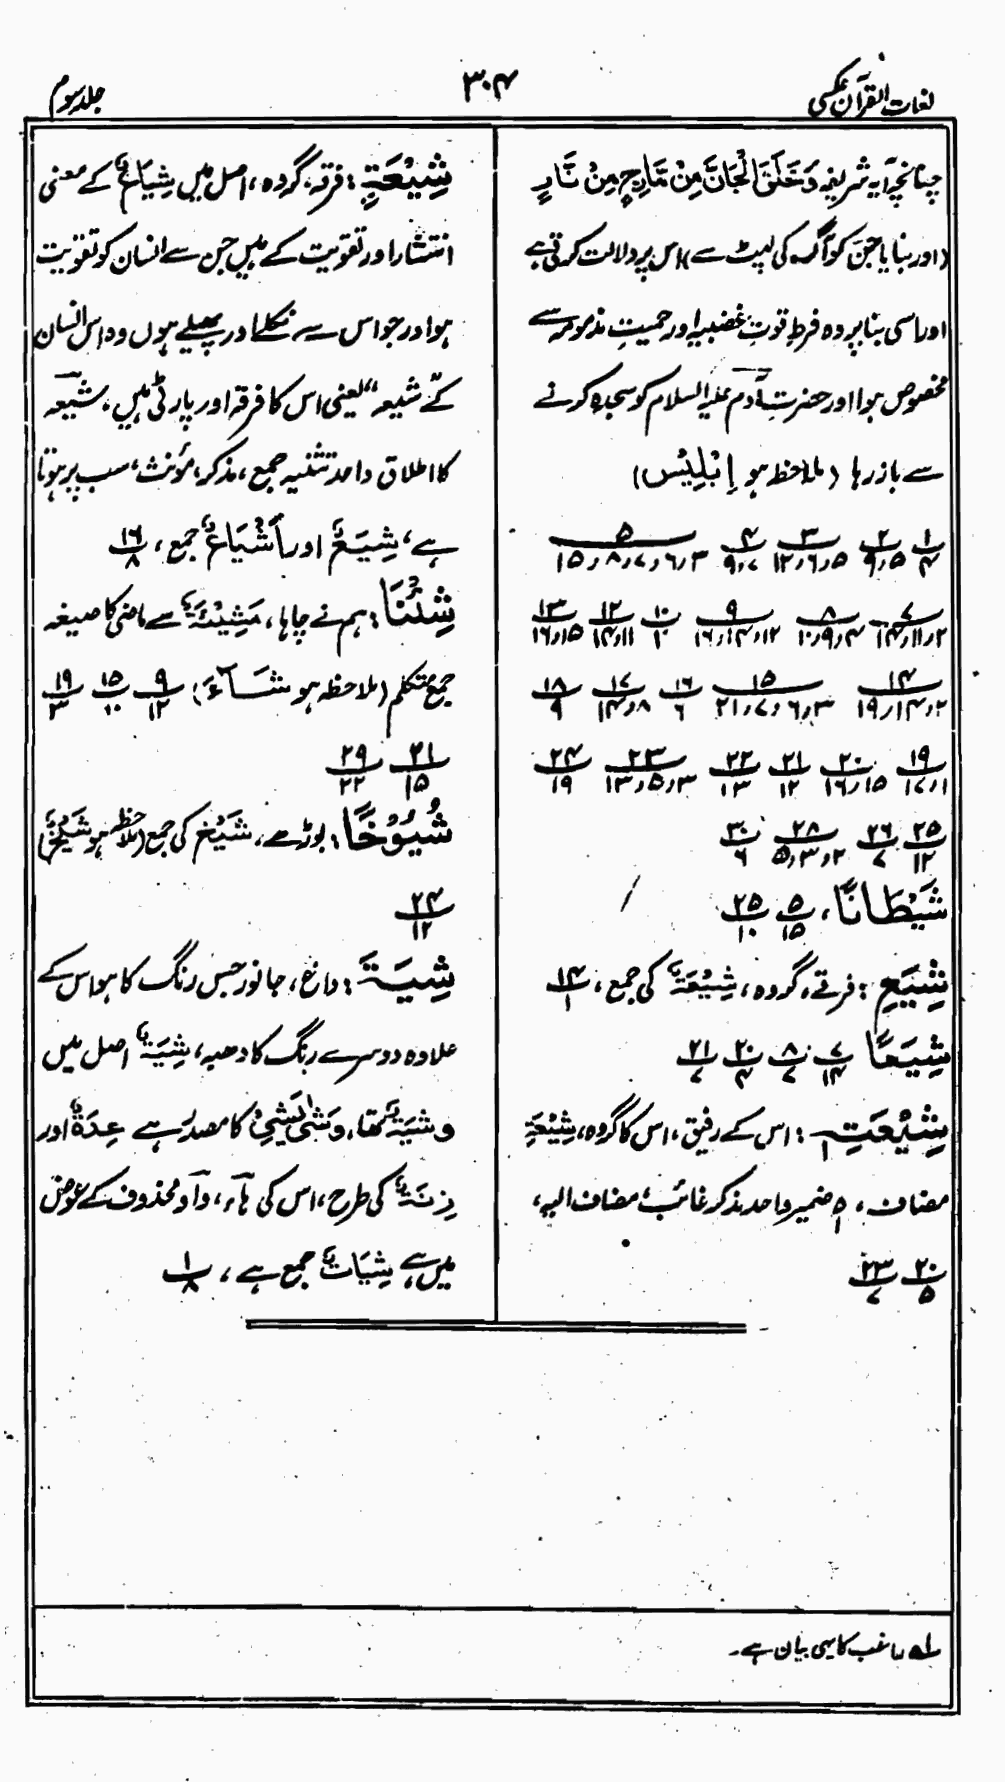 لغات القرآن عکسی
۳۰۴
جلد سوم
چنانچہ آیہ شریفہ وَخَلَقَ الْجَانَّ مِنْ مَّارِجٍ مِنْ نَّارٍ
(اور بنایا جن کو آگ کی لپٹ سے) اس پر دلالت کرتی ہے
اور اسی بنا پر وہ فرطِ قوتِ غضبیہ اور حمیتِ مذمومہ سے
مخصوص ہوا اور حضرت آدم علیہ السلام کو سجدہ کرنے
سے باز رہا (ملاحظہ ہو اِبْلِیْس)
۱/۴ ۲/۹،۵ ۳/۱۲،۶،۵ ۴/۹،۷ ۵/۱۵،۸،۷،۶،۳
۷/۱۴،۱۱،۲ ۸/۱۰،۹،۴ ۹/۱۶،۱۴،۱۲ ۱۰/۱۰ ۱۲/۱۴،۱۱ ۱۳/۱۶،۱۵
۱۴/۱۹،۱۴،۲ ۱۵/۲۱،۷،۶،۳ ۱۶/۶ ۱۷/۱۴،۸ ۱۸/۹
۱۹/۱۷،۱ ۲۰/۱۶،۱۵ ۲۱/۱۲ ۲۲/۱۳ ۲۳/۱۳،۵،۳ ۲۴/۱۹
۲۵/۱۲ ۲۶/۷ ۲۸/۵،۳،۲ ۳۰/۶
شَیْطَانًا، ۵/۱۵ ۲۵/۱۰
شِیَعِ: فرقے، گروہ، شِیْعَۃٌ کی جمع، ۱۴/۱
شِیَعًا ۷/۱۴ ۸/۷ ۲۰/۴ ۲۱/۷
شِیْعَتِہٖ: اس کے رفیق، اس کا گروہ، شِیْعَۃِ
مضاف، ہ ضمیر واحد مذکر غائب، مضاف الیہ،
۲۰/۵ ۲۳/۷
شِیْعَۃٍ: فرقہ، گروہ، اصل میں شِیَاعٌ کے معنی
انتشار اور تقویت کے ہیں جن سے انسان کو تقویت
ہو اور جو اس سے نکلے اور پھیلے ہوں وہ اس انسان
کے "شیعہ" یعنی اس کا فرقہ اور پارٹی ہیں، شیعہ
کا اطلاق واحد تثنیہ جمع، مذکر، مؤنث، سب پر ہوتا
ہے، شِیَعٌ اور اَشْیَاعٌ جمع، ۱۶/۸
شِئْنَا: ہم نے چاہا، مَشِیْئَۃٌ سے ماضی کا صیغہ
جمع متکلم (ملاحظہ ہو شَآءَ) ۹/۱۲ ۱۵/۱۰ ۱۹/۳
۲۱/۱۵ ۲۹/۲۲
شُیُوْخًا: بوڑھے، شَیْخ کی جمع (ملاحظہ ہو شَیْخٌ)
۲۴/۱۲
شِیَۃَ: داغ، جانور جس رنگ کا ہو اس کے
علاوہ دوسرے رنگ کا دھبہ، شِیَۃٌ اصل میں
وشیۃٌ تھا، وَشٰی یَشِیْ کا مصدر ہے عِدَۃٌ اور
زِنَۃٌ کی طرح، اس کی ہآء، وآو محذوف کے عوض
میں ہے شِیَاتٌ جمع ہے، ۱/۸
لہ راغب کا یہی بیان ہے۔